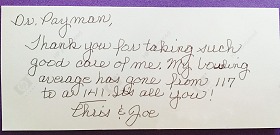 Dr. Payman,
Thank you for taking such
good care of me. My bowling
average has gone from 117
to a 141. It's all you!
Chris & Joe